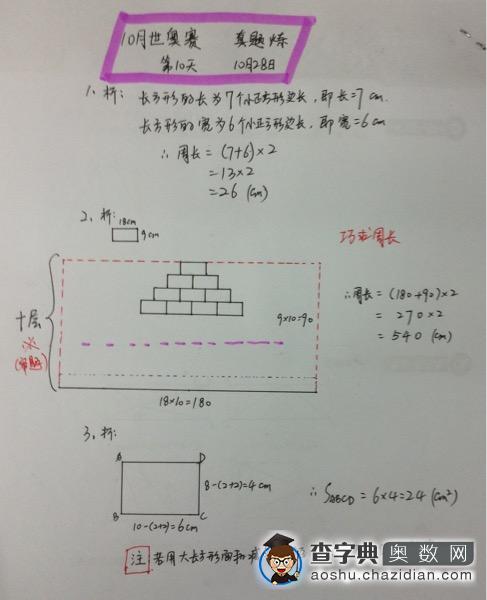 10月世奥赛 真题练
第10天 10月28日
1、析: 长方形的长为7个小正方形边长,即长=7cm.
长方形的宽为6个小正方形边长,即宽=6cm
∴周长=(7+6)×2
=13×2
=26(cm)
2、析:
18cm
9cm
巧求周长
十层
9×10=90
∴周长=(180+90)×2
=270×2
=540(cm)
18×10=180
3、析:
D
8-(2+2)=4cm
B C
10-(2+2)=6cm
∴SABCD=6×4=24(cm²)
注 若用大长方形面积减
查字典奥数网
aoshu.chazidian.com